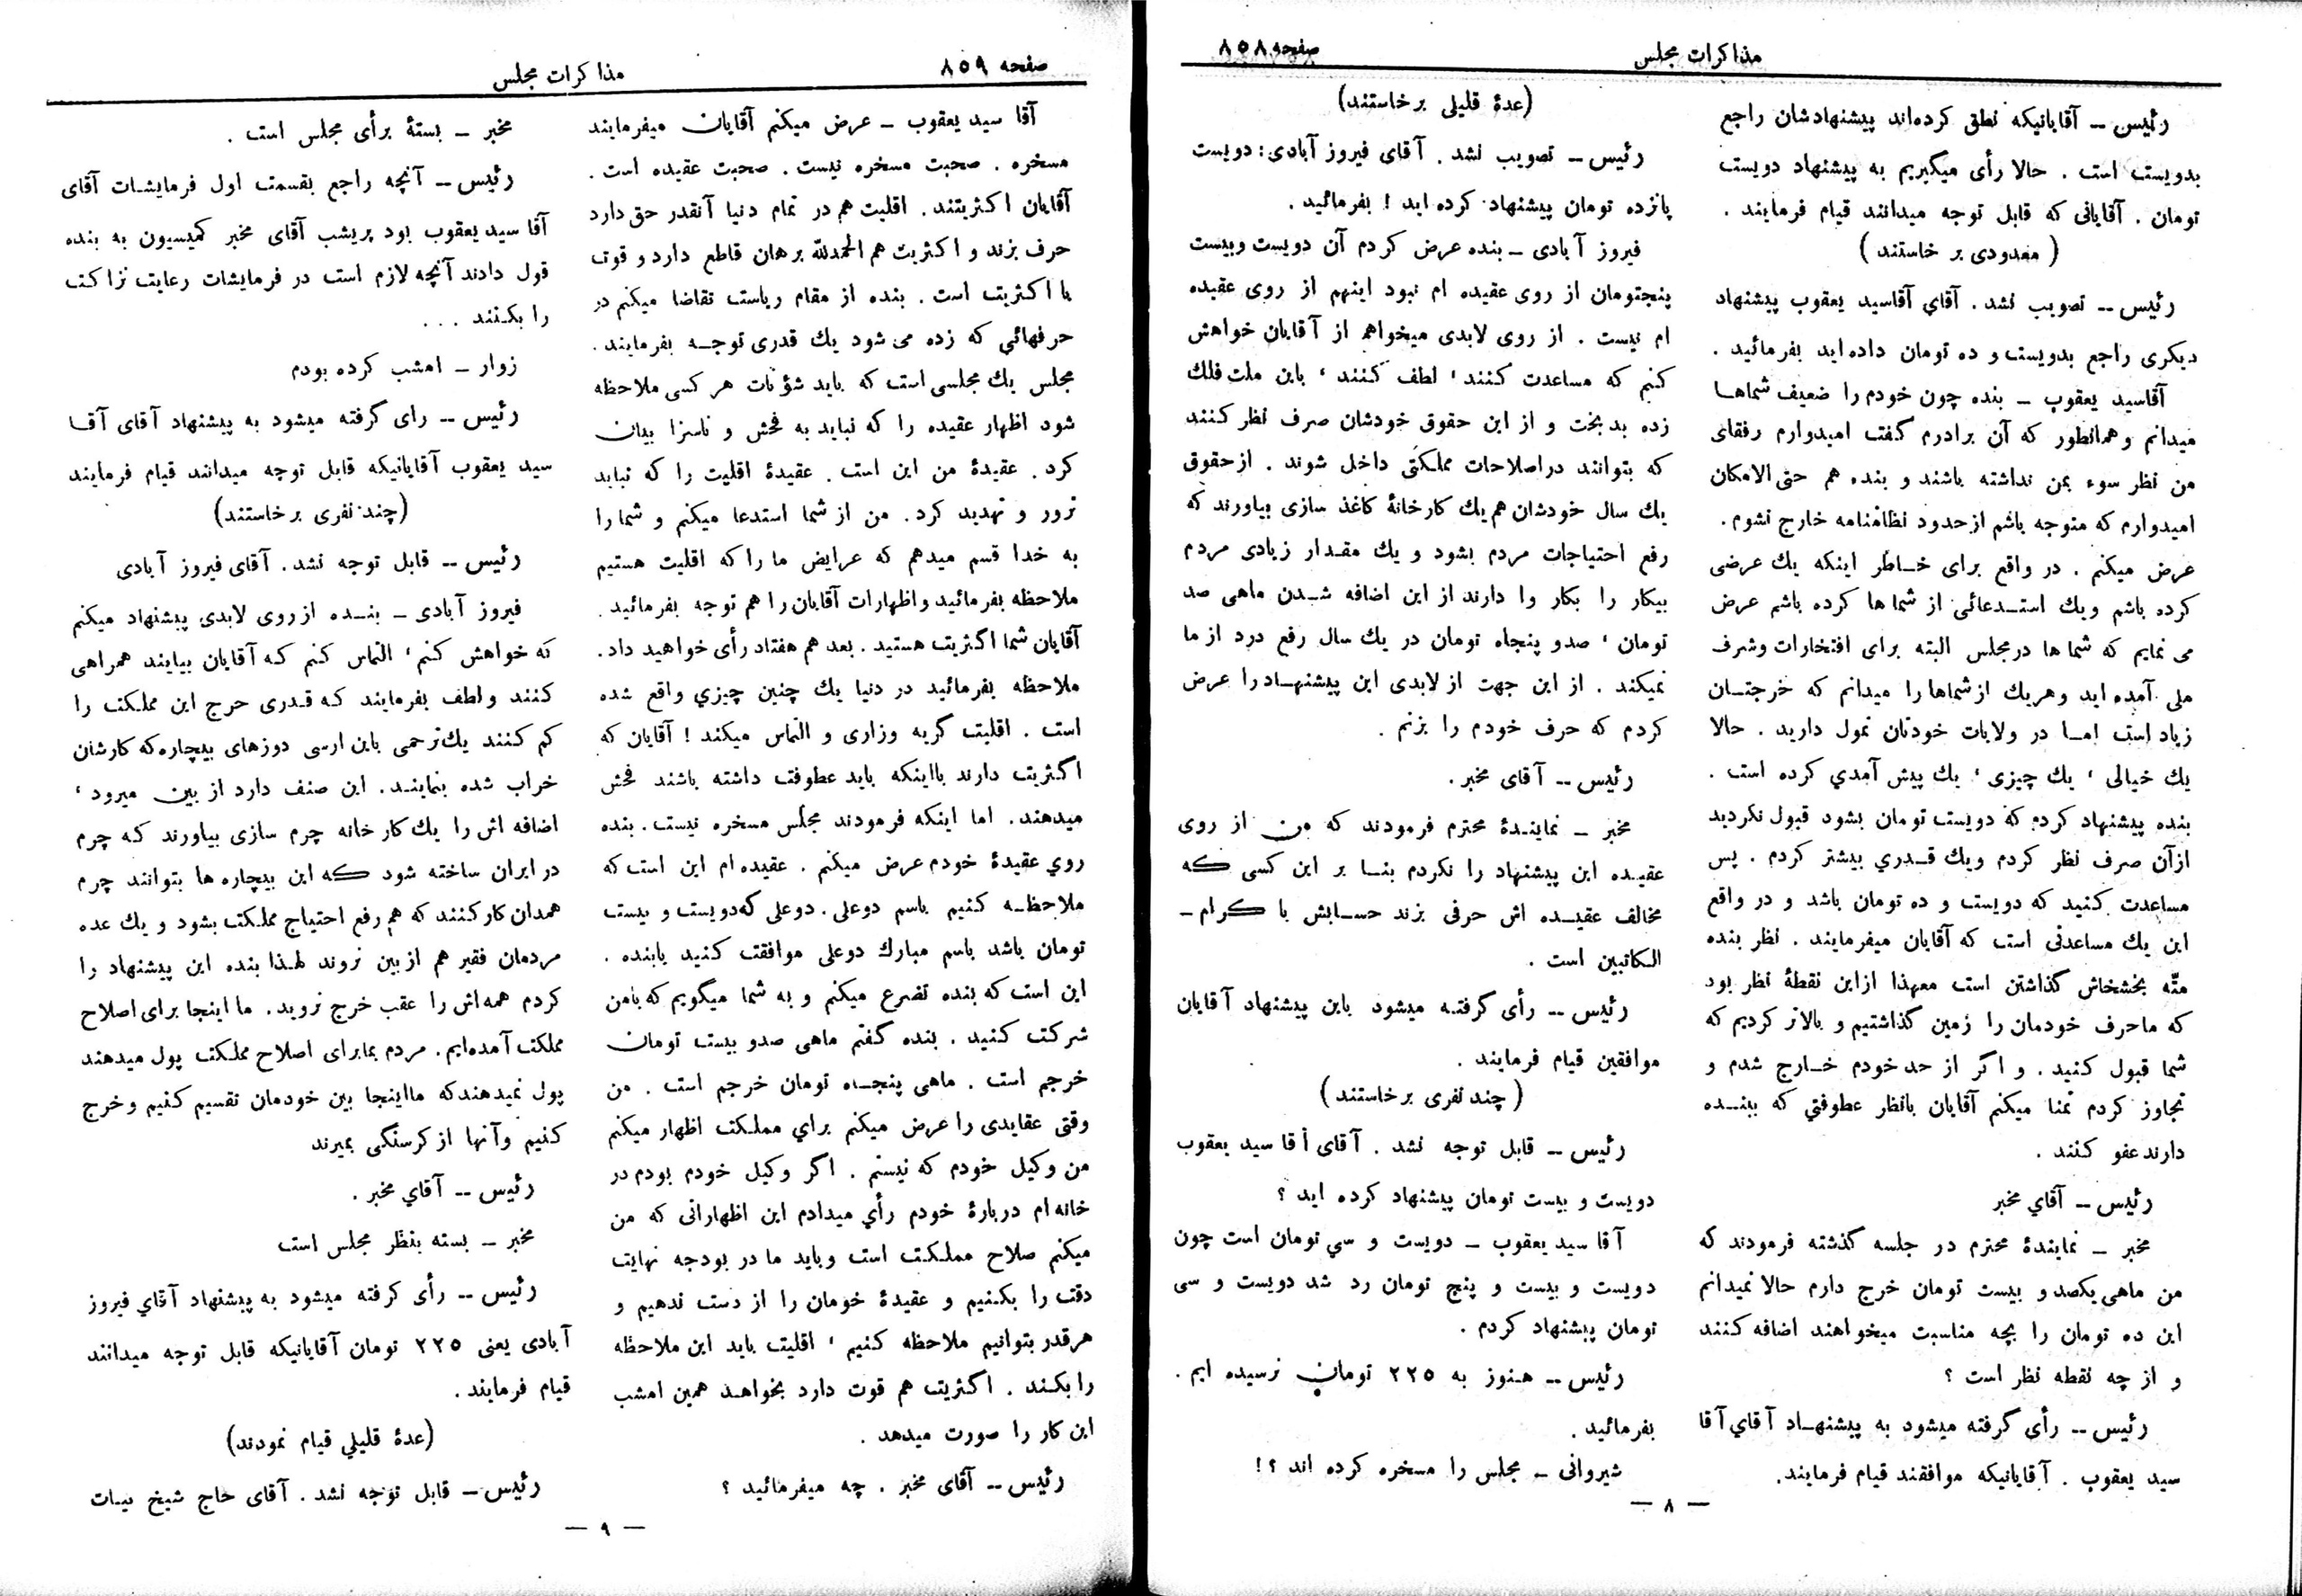 مذاکرات مجلس
صفحه ۸۵۸
رئیس – آقایانیکه نطق کرده‌اند پیشنهادشان راجع
بدویست است . حالا رأی میگیریم به پیشنهاد دویست
تومان . آقایانی که قابل توجه میدانند قیام فرمایند .
( معدودی بر خاستند )
رئیس – تصویب نشد . آقاي آقاسید یعقوب پیشنهاد
دیگری راجع بدویست و ده تومان داده اید بفرمائید .
آقاسید یعقوب – بنده چون خودم را ضعیف شماها
میدانم و همانطور که آن برادرم گفت امیدوارم رفقای
من نظر سوء بمن نداشته باشند و بنده هم حتی الامکان
امیدوارم که متوجه باشم از حدود نظامنامه خارج نشوم .
عرض میکنم . در واقع برای خاطر اینکه یك عرضی
کرده باشم ویك استدعائی از شما ها کرده باشم عرض
می نمایم که شما ها در مجلس البته برای افتخارات وشرف
ملی آمده اید وهریك از شماها را میدانم که خرجتان
زیاد است اما در ولایات خودتان تمول دارید . حالا
یك خیالی ، یك چیزی ، یك پیش آمدي کرده است .
بنده پیشنهاد کردم که دویست تومان بشود قبول نکردید
از آن صرف نظر کردم ویك قدري بیشتر کردم . پس
مساعدت کنید که دویست و ده تومان باشد و در واقع
این یك مساعدتی است که آقایان میفرمایند . نظر بنده
متّه بخشخاش گذاشتن است معهذا از این نقطهٔ نظر بود
که ماحرف خودمان را زمین گذاشتیم و بالاتر کردیم که
شما قبول کنید . و اگر از حد خودم خارج شدم و
تجاوز کردم تمنا میکنم آقایان بانظر عطوفتي که ببنده
دارند عفو کنند .
رئیس – آقاي مخبر
مخبر – نمایندهٔ محترم در جلسه گذشته فرمودند که
من ماهی یکصد و بیست تومان خرج دارم حالا نمیدانم
این ده تومان را بچه مناسبت میخواهند اضافه کنند
و از چه نقطه نظر است ؟
رئیس – رأی گرفته میشود به پیشنهاد آقاي آقا
سید یعقوب . آقایانیکه موافقند قیام فرمایند.
(عدهٔ قلیلی برخاستند)
رئیس – تصویب نشد . آقای فیروز آبادی : دویست
پانزده تومان پیشنهاد کرده اید ! بفرمائید .
فیروز آبادی – بنده عرض کردم آن دویست وبیست
پنجتومان از روی عقیده ام نبود اینهم از روی عقیده
ام نیست . از روی لابدی میخواهم از آقایان خواهش
کنم که مساعدت کنند ، لطف کنند ، باین ملت فلك
زده بدبخت و از این حقوق خودشان صرف نظر کنند
که بتوانند در اصلاحات مملکتی داخل شوند . از حقوق
یك سال خودشان هم یك کارخانهٔ کاغذ سازی بیاورند که
رفع احتیاجات مردم بشود و یك مقدار زیادی مردم
بیکار را بکار وا دارند از این اضافه شدن ماهی صد
تومان ، صدو پنجاه تومان در یك سال رفع درد از ما
نمیکند . از این جهت از لابدی این پیشنهاد را عرض
کردم که حرف خودم را بزنم .
رئیس – آقای مخبر .
مخبر – نمایندهٔ محترم فرمودند که من از روی
عقیده این پیشنهاد را نکردم بنا بر این کسی که
مخالف عقیده اش حرفی بزند حسابش با کرام –
الکاتبین است .
رئیس – رأی گرفته میشود باین پیشنهاد آقایان
موافقین قیام فرمایند .
( چند نفری برخاستند )
رئیس – قابل توجه نشد . آقای آقا سید یعقوب
دویست و بیست تومان پیشنهاد کرده اید ؟
آقا سید یعقوب – دویست و سي تومان است چون
دویست و بیست و پنج تومان رد شد دویست و سی
تومان پیشنهاد کردم .
رئیس – هنوز به ۲۲۵ تومان نرسیده ایم .
بفرمائید .
شیروانی – مجلس را مسخره کرده اند ؟!
— ۸ —
صفحه ۸۵۹
مذاکرات مجلس
آقا سید یعقوب – عرض میکنم آقایان میفرمایند
مسخره . صحبت مسخره نیست . صحبت عقیده است .
آقایان اکثریتند . اقلیت هم در تمام دنیا آنقدر حق دارد
حرف بزند و اکثریت هم الحمدلله برهان قاطع دارد و قوت
با اکثریت است . بنده از مقام ریاست تقاضا میکنم در
حرفهائي که زده می شود یك قدری توجه بفرمایند .
مجلس یك مجلسی است که باید شؤنات هر کسی ملاحظه
شود اظهار عقیده را که نباید به فحش و ناسزا بیان
کرد . عقیدهٔ من این است . عقیدهٔ اقلیت را که نباید
ترور و تهدید کرد . من از شما استدعا میکنم و شما را
به خدا قسم میدهم که عرایض ما را که اقلیت هستیم
ملاحظه بفرمائید و اظهارات آقایان را هم توجه بفرمائید .
آقایان شما اکثریت هستید . بعد هم هفتاد رأی خواهید داد .
ملاحظه بفرمائید در دنیا یك چنین چیزي واقع شده
است . اقلیت گریه وزاری و التماس میکند ! آقایان که
اکثریت دارند بااینکه باید عطوفت داشته باشند فحش
میدهند. اما اینکه فرمودند مجلس مسخره نیست . بنده
روي عقیدهٔ خودم عرض میکنم . عقیده ام این است که
ملاحظه کنیم باسم دوعلی . دوعلی که دویست و بیست
تومان باشد باسم مبارك دوعلی موافقت کنید بابنده .
این است که بنده تضرع میکنم و به شما میگویم که بامن
شرکت کنید . بنده گفتم ماهی صدو بیست تومان
خرجم است . ماهی پنجاه تومان خرجم است . من
وقتی عقایدی را عرض میکنم براي مملکت اظهار میکنم
من وکیل خودم که نیستم . اگر وکیل خودم بودم در
خانه ام دربارهٔ خودم رأي میدادم این اظهاراتی که من
میکنم صلاح مملکت است وباید ما در بودجه نهایت
دقت را بکنیم و عقیدهٔ خومان را از دست ندهیم و
هرقدر بتوانیم ملاحظه کنیم ، اقلیت باید این ملاحظه
را بکند . اکثریت هم قوت دارد بخواهد همین امشب
این کار را صورت میدهد .
رئیس – آقای مخبر . چه میفرمائید ؟
مخبر – بستهٔ برأی مجلس است .
رئیس – آنچه راجع بقسمت اول فرمایشات آقای
آقا سید یعقوب بود پریشب آقای مخبر کمیسیون به بنده
قول دادند آنچه لازم است در فرمایشات رعایت نزاکت
را بکنند . . .
زوار – امشب کرده بودم
رئیس – رای گرفته میشود به پیشنهاد آقای آقا
سید یعقوب آقایانیکه قابل توجه میدانند قیام فرمایند
(چند نفری برخاستند)
رئیس – قابل توجه نشد . آقای فیروز آبادی
فیروز آبادی – بنده از روی لابدی پیشنهاد میکنم
که خواهش کنم ، التماس کنم که آقایان بیایند همراهی
کنند ولطف بفرمایند که قدری حرج این مملکت را
کم کنند یك ترحمی باین ارسی دوزهای بیچاره که کارشان
خراب شده بنمایند . این صنف دارد از بین میرود ،
اضافه اش را یك کارخانه چرم سازی بیاورند که چرم
در ایران ساخته شود که این بیچاره ها بتوانند چرم
همدان کار کنند که هم رفع احتیاج مملکت بشود و یك عده
مردمان فقیر هم از بین نروند لهذا بنده این پیشنهاد را
کردم همه اش را عقب خرج نروید . ما اینجا برای اصلاح
مملکت آمده‌ایم . مردم بمابرای اصلاح مملکت پول میدهند
پول نمیدهند که مااینجا بین خودمان تقسیم کنیم و خرج
کنیم وآنها از گرسنگی بمیرند
رئیس – آقاي مخبر .
مخبر – بسته بنظر مجلس است
رئیس – رأی گرفته میشود به پیشنهاد آقاي فیروز
آبادی یعنی ۲۲۵ تومان آقایانیکه قابل توجه میدانند
قیام فرمایند .
(عدهٔ قلیلي قیام نمودند)
رئیس – قابل توجه نشد . آقای حاج شیخ بیات
— ۹ —